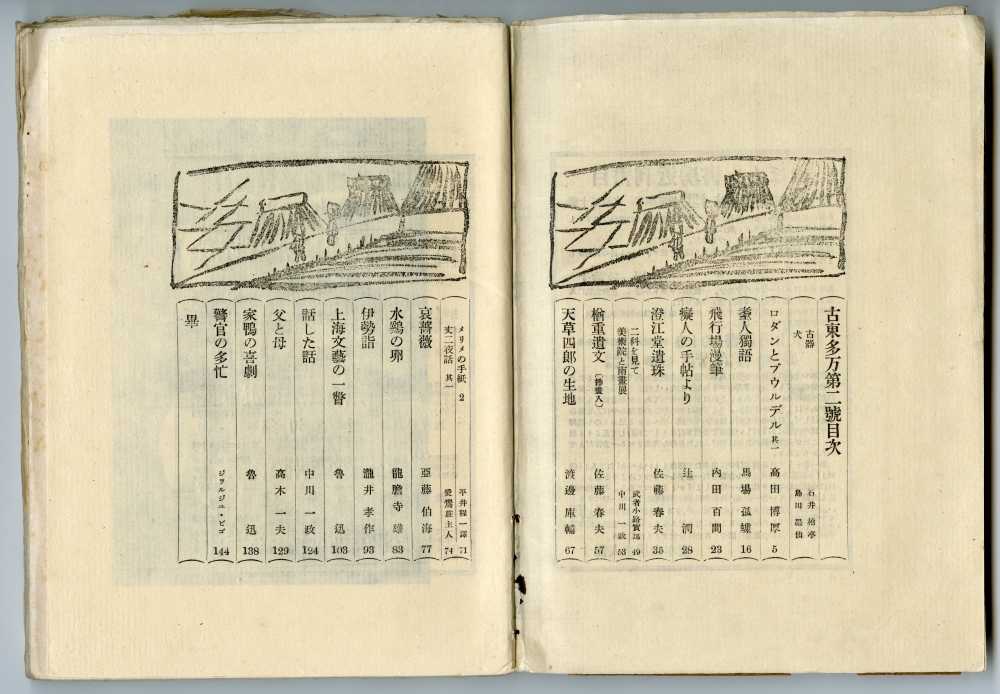 古東多万第二號目次
古器 石井柏亭
犬 島田墨仙
ロダンとブウルデル 其一 高田博厚 5
盲人獨語 馬場孤蝶 16
飛行場漫筆 內田百間 23
癡人の手帖より 辻潤 28
澄江堂遺珠 佐藤春夫 35
二科を見て 武者小路實篤 49
美術院と南畫展 中川一政 53
楢重遺文(挿畫入) 佐藤春夫 57
天草四郎の生地 渡邊庫輔 67
メリメの手紙 2 平井程一譯 71
丈二夜話 其一 愛鶯莊主人 74
哀薔薇 亞藤伯海 77
水鷄の卵 龍膽寺雄 83
伊勢詣 瀧井孝作 93
上海文藝の一瞥 魯迅 103
話した話 中川一政 124
父と母 高木一夫 129
家鴨の喜劇 魯迅 138
警官の多忙 ジヲルジユ・ビゴ 144
畢